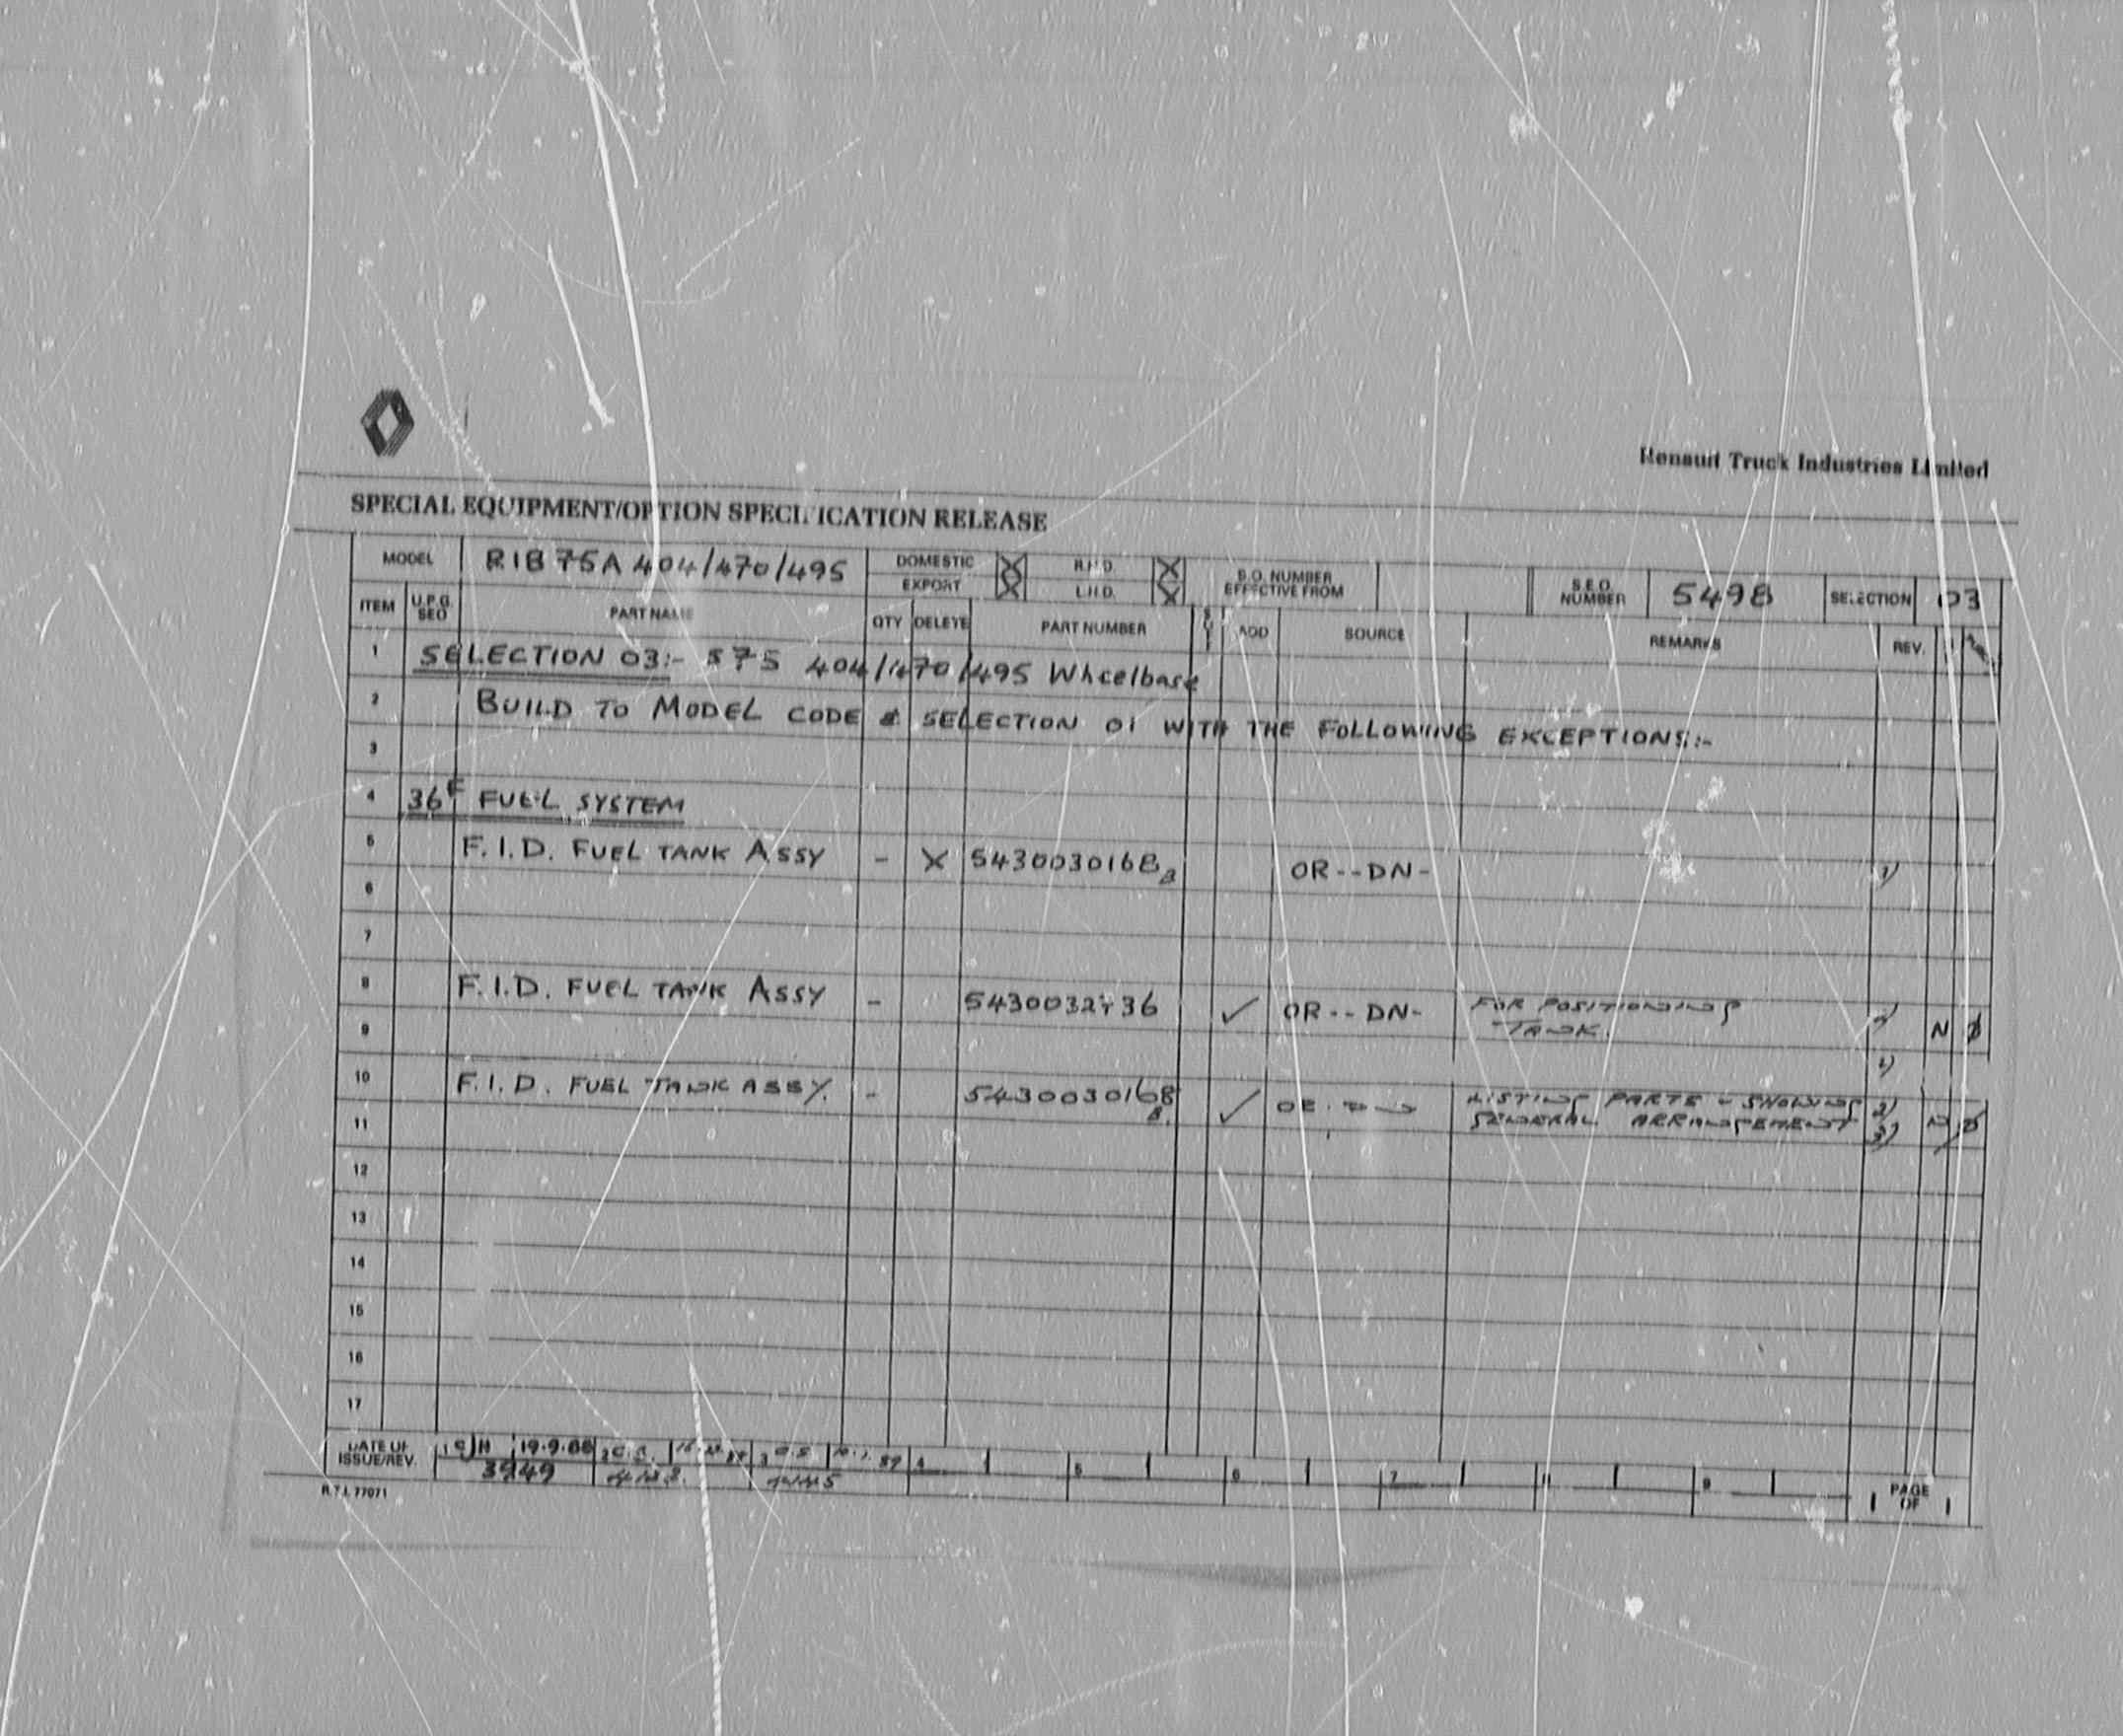 Renault Truck Industries Limited
SPECIAL EQUIPMENT/OPTION SPECIFICATION RELEASE
MODEL R1B 75A 404/470/495 DOMESTIC X R.H.D. X S.O. NUMBER EFFECTIVE FROM S.E.O. NUMBER 5498 SELECTION 03
EXPORT X L.H.D. X
ITEM U.P.G. SEQ PART NAME QTY DELETE PART NUMBER ADD SOURCE REMARKS REV.
1 SELECTION 03:- S75 404/470/495 Wheelbase
2 BUILD TO MODEL CODE & SELECTION 01 WITH THE FOLLOWING EXCEPTIONS:-
3
4 36F FUEL SYSTEM
5 F.I.D. FUEL TANK ASSY - X 5430030168B OR--DN- 1)
6
7
8 F.I.D. FUEL TANK ASSY - 5430032736 ✓ OR--DN- FOR POSITIONING
TANK. N
9
1)
10 F.I.D. FUEL TANK ASSY. - 5430030168 ✓ LISTING PARTS & SHOWING 2)
GENERAL ARRANGEMENT 3) N
11
12
13
14
15
16
17
DATE OF ISSUE/REV. 1 CJH 19.9.88 2 C.S. 3 C.S 89 4 5 6 7 8 9
3949 4445
PAGE 1 OF 1
R.T.I. 77071